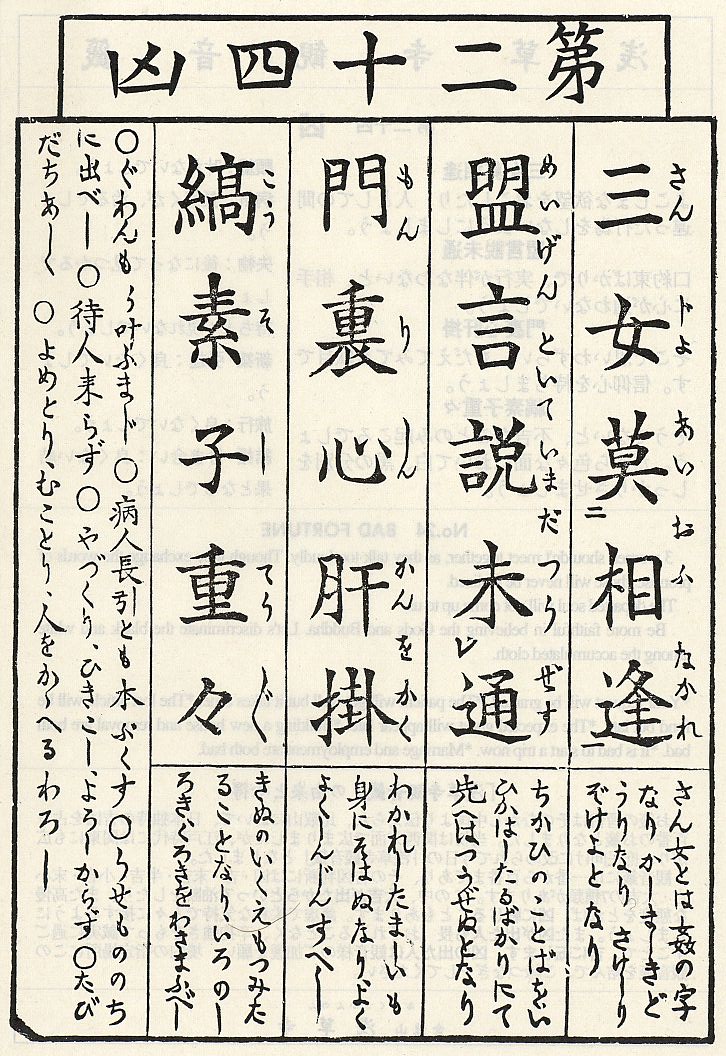 第二十四凶
三女莫二相逢
さんぢよあいおふなかれ
さん女とは姦の字
なりかしましきど
うりなり。さけしり
ぞけよとなり
盟言説未レ通
めいげんといていまだつうぜず
ちかひのことばをい
ひかはしたるばかりにて
先へはつうぜぬとなり
門裏心肝掛
もんりしんかんをかく
わかれてたましいも
身にそはぬなりよく
よくしんすべし
縞素子重々
こうそしてうぐ
きぬのいくえもつみた
ることなりいろのし
ろきくろきをわきまふべし
〇ぐわんもう叶ふまじ〇病人長引とも本ぶくす〇うせもののち
に出べし〇待人来らず〇やづくり、ひきこし、よろしからず〇たび
だちあしく〇よめとり、むことり、人をかゝへるわろし